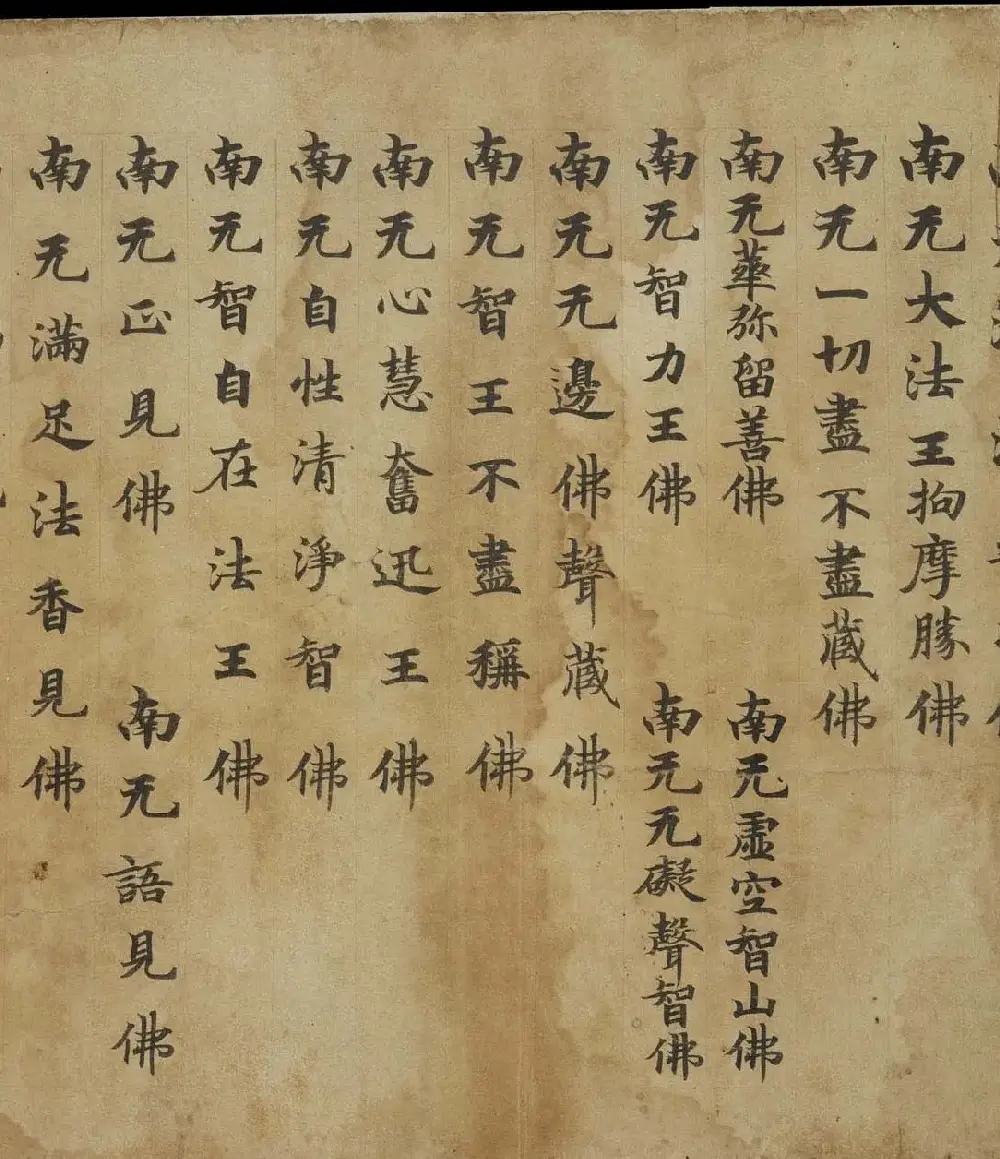 南无大法王拘摩勝佛
南无一切盡不盡藏佛
南无華弥留善佛 南无虛空智山佛
南无智力王佛 南无无礙聲智佛
南无无邊佛聲藏佛
南无智王不盡稱佛
南无心慧奮迅王佛
南无自性清淨智佛
南无智自在法王佛
南无正見佛 南无語見佛
南无滿足法香見佛